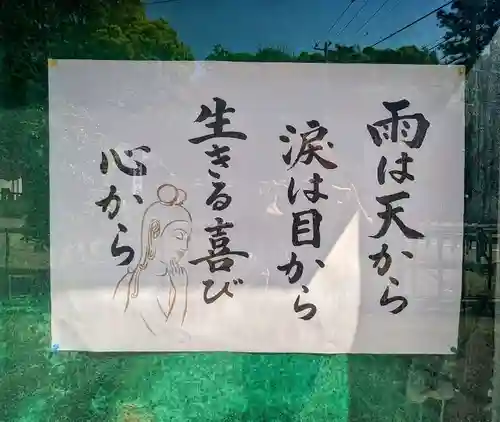 雨は天から
涙は目から
生きる喜び
心から